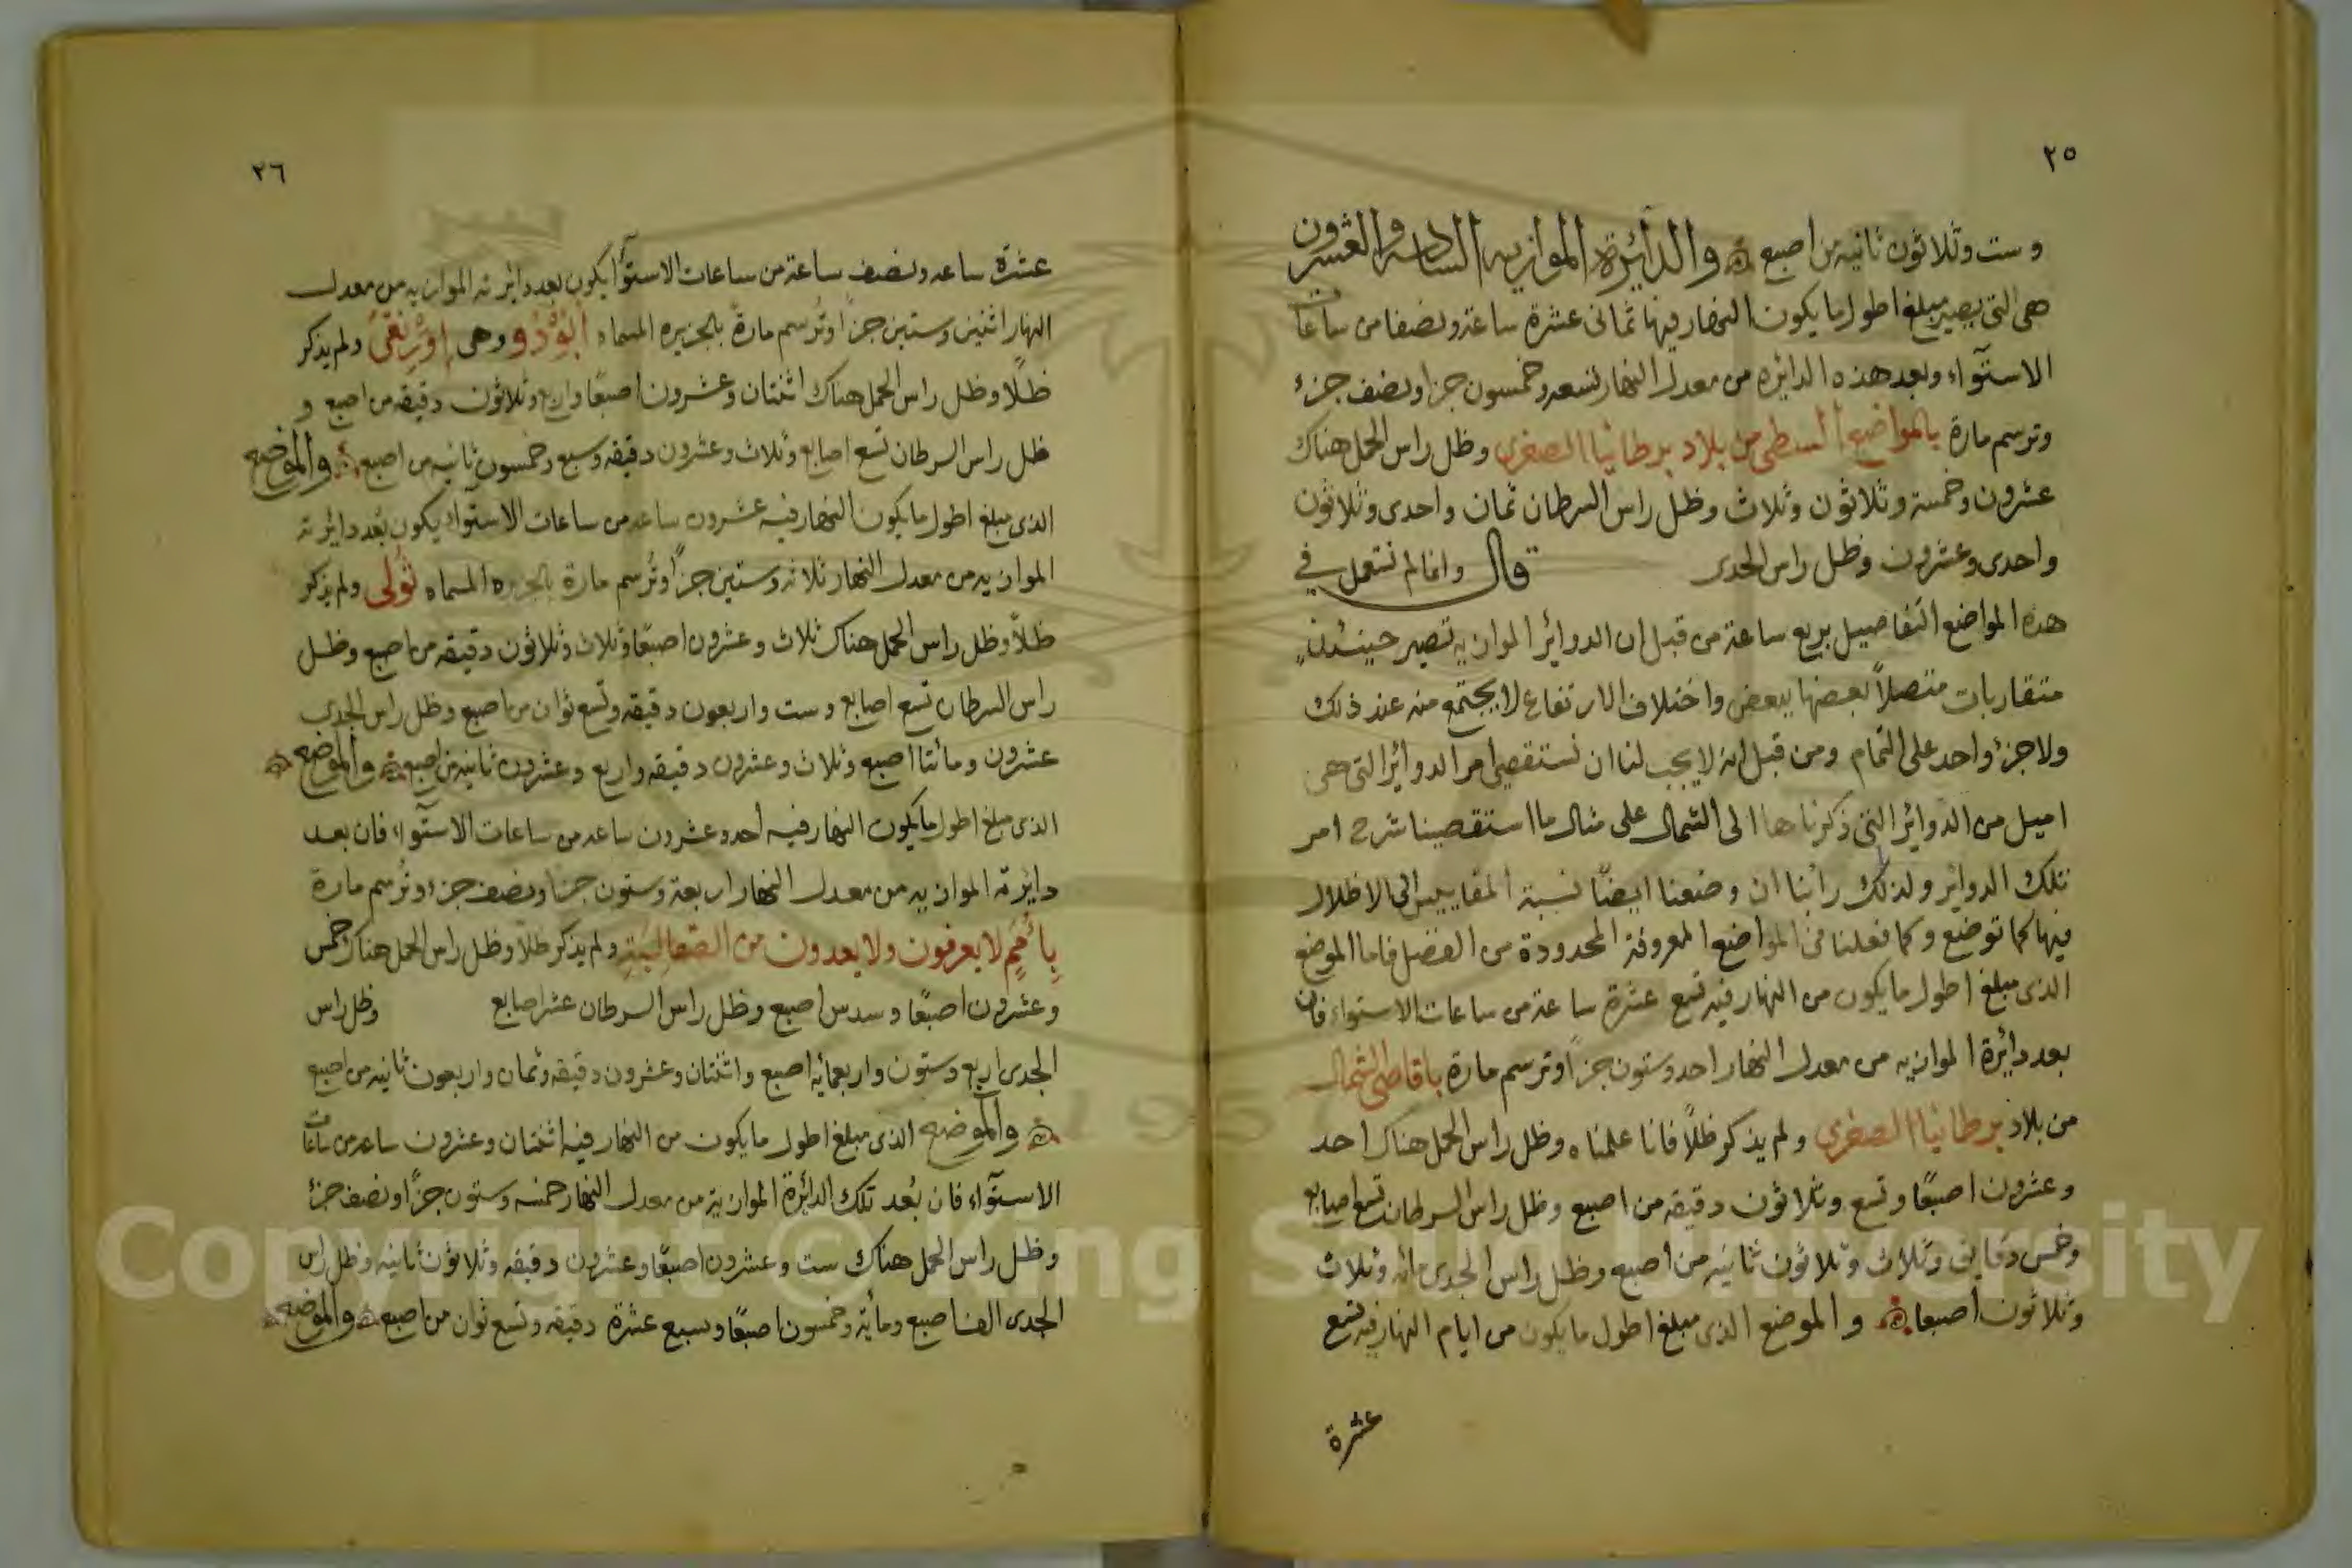 ٢٥
وست وثلاثون ثانيه من اصبع والدائرة الموازيه السادسه والعشرون
هى التى يصير مبلغ اطول ما يكون النهار فيها ثمانى عشرة ساعة ونصفا من ساعات
الاستوآء وبعد هذه الدائره من معدل النهار تسعه وخمسون جزا ونصف جزء
وترسم مارة بالمواضع الوسطى من بلاد برطانيا الصغرى وظل راس الحمل هناك
عشرون وخمسة وثلاثون وثلاث وظل راس السرطان ثمان واحدى وثلاثون
واحدى وعشرون وظل راس الجدى قال وانما لم نستعمل فى
هذه المواضع التفاصيل بربع ساعة من قبل ان الدوائر الموازيه تصير حينئذٍ
متقاربات متصلاً بعضها ببعض واختلاف الارتفاع لا يجتمع منه عند ذلك
ولا جزء واحد على التمام ومن قبل انه لا يجب لنا ان نستقصى امر الدوائر التى هى
اميل من الدوائر التى ذكرناها الى الشمال على مثال ما استقصينا شرح امر
تلك الدوائر ولذلك رأينا ان وضعنا ايضًا نسبة المقاييس الى الاظلال
فيها كما توضع وكما فعلنا فى المواضع المعروفة المحدودة من الفضل فاما الموضع
الذى مبلغ اطول ما يكون من النهار فيه تسع عشرة ساعة من ساعات الاستواء فان
بعد دائرة الموازيه من معدل النهار احد وستون جزاً وترسم مارة باقاصى شمال
من بلاد برطانيا الصغرى ولم يذكر ظلاً فانا علمناه وظل راس الحمل هناك احد
وعشرون اصبعًا وتسع وثلاثون دقيقه من اصبع وظل راس السرطان تسع اصابع
وخمس دقايق وثلاث وثلاثون ثانيه من اصبع وظل راس الجدى مائه وثلاث
وثلاثون اصبعا والموضع الذى مبلغ اطول ما يكون من ايام النهار فيه تسع
عشرة
٢٦
عشرة ساعه ونصف ساعة من ساعات الاستوآ يكون بعد دائرته الموازيه من معدل
النهار اثنين وستين جزاً وتُرسم مارةً بالجزيره المسماه ابُوْدُو وهى ولم يذكر
ظلًا وظل راس الحمل هناك اثنتان وعشرون اصبعًا واربع وثلاثون دقيقه من اصبع و
ظل راس السرطان تسع اصابع وثلاث وعشرون دقيقه وسبع وخمسون ثانيه من اصبع والموضع
الذى مبلغ اطول ما يكون النهار فيه عشرون ساعه من ساعات الاستوآء يكون بُعد دائرته
الموازيه من معدل النهار ثلاثه وستين جزاً وتُرسم مارة بالجزيره المسماه ثُولى ولم يذكر
ظلاً وظل راس الحمل هناك ثلاث وعشرون اصبعًا وثلاث وثلاثون دقيقه من اصبع وظل
راس السرطان تسع اصابع وست واربعون دقيقه وتسع ثوان من اصبع وظل راس الجدى
عشرون ومائتا اصبع وثلاث وعشرون دقيقه واربع وعشرون ثانيه من اصبع والموضع
الذى مبلغ اطول ما يكون النهار فيه أحد وعشرون ساعه من ساعات الاستوآء فان بعد
دايرته الموازيه من معدل النهار اربعة وستون جزاً ونصف جزء وتُرسم مارة
بأُمَمٍ لا يعرفون ولا يعدون من الصقالبَيةِ ولم يذكر ظلاً وظل راس الحمل هناك خمس
وعشرون اصبعًا وسدس اصبع وظل راس السرطان عشر اصابع وظل راس
الجدى اربع وستون واربعمايه اصبع واثنتان وعشرون دقيقه وثمان واربعون ثانيه من اصبع
والموضع الذى مبلغ اطول ما يكون من النهار فيه اثنتان وعشرون ساعه من ساعات
الاستوآء فان بُعد تلك الدائرة الموازية من معدل النهار خمسه وستون جزاً ونصف جزء
وظل راس الحمل هناك ست وعشرون اصبعًا وعشرون دقيقه وثلاثون ثانيه وظل راس
الجدى الف اصبع ومأية وخمسون اصبعًا وسبع عشرة دقيقه وتسع ثوان من اصبع والموضع
Copyright © King Saud University
1957